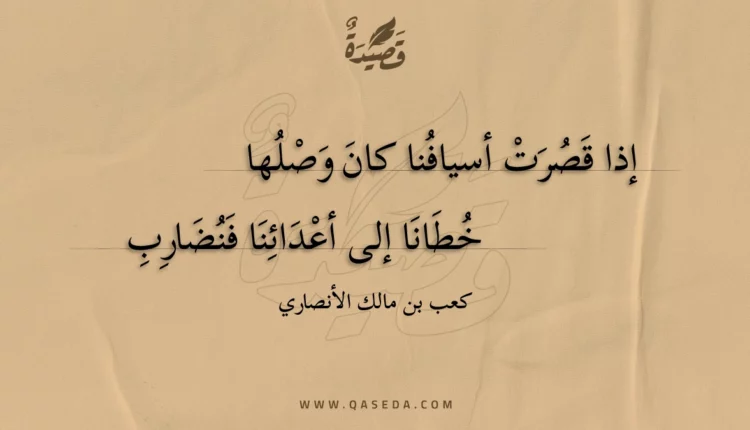 قَصِيدَةٌ
إذا قَصُرَتْ أسيافُنا كانَ وَصْلُها
خُطَانَا إلى أعْدَائِنَا فَنُضَارِبِ
كعب بن مالك الأنصاري
WWW.QASEDA.COM